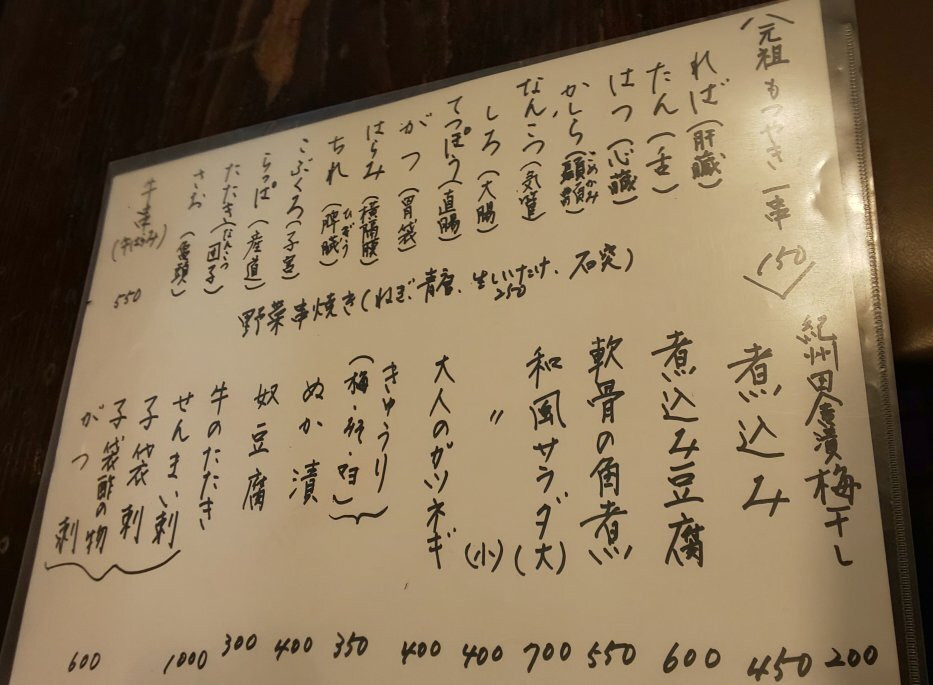 元祖もつやき 一串 150
れば(肝臓)
たん(舌)
はつ(心臓)
かしら(顳顬)こめかみ
なんこつ(気管)
しろ(大腸)
てっぽう(直腸)
がつ(胃袋)
はらみ(横隔膜)
ちれ(脾臓)ひぞう
こぶくろ(子宮)
らっぱ(産道)
たたき(なんこつ団子)
さお(電頭)
牛串(牛はらみ) 550
野菜串焼き(ねぎ、青唐、生しいたけ、石突)
250
紀州田舎漬梅干し 200
煮込み 450
煮込み豆腐 600
軟骨の角煮 550
和風サラダ(大) 700
〃(小) 400
大人のガツネギ 400
きゅうり
(梅・みそ・マヨ) 350
ぬか漬 400
奴豆腐 300
牛のたたき 1000
せんまい刺
子袋刺
子袋酢の物
がつ刺
600